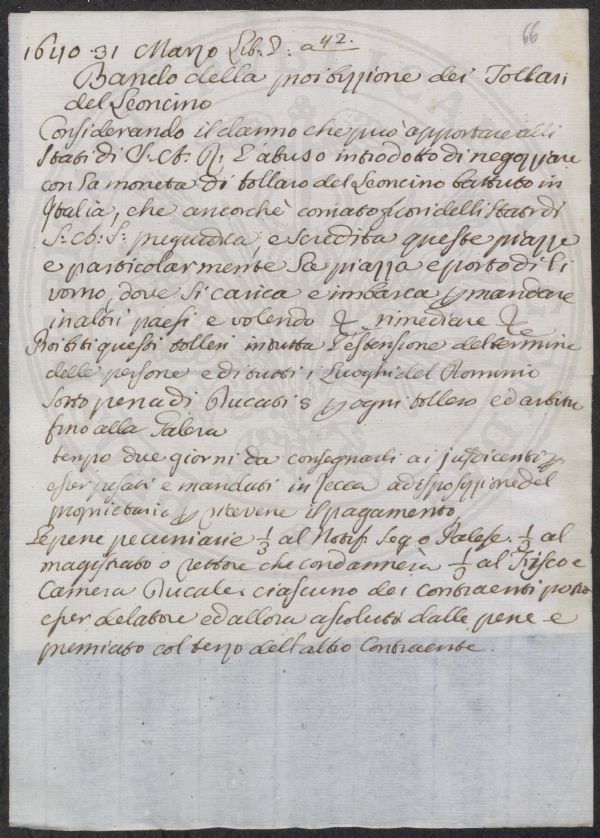 66
1640 31 Marzo Lib. D. a 42.
Bando della proibizione dei Tollari
del Leoncino
Considerando il danno che può apportare alli
Stati di S. A. S. L'abuso introdotto di negoziare
con la moneta di tollaro del Leoncino battuto in
Italia, che ancorchè coniato fuori delli Stati di
S. A. S. pregiudica, e scredita queste piazze
e particolarmente la piazza e porto di Li
vorno, dove si carica e imbarca p mandare
in altri paesi e volendo rimediare
Proibiti questi tolleri in tutta l'estensione del termine
delle persone e di tutti i Luoghi del Dominio
sotto pena di Ducati 5 p ogni tollero ed arbitrio
fino alla Galera
tempo due giorni da consegnarli ai jusdicenti p
esser pesati e mandati in Zecca a disposizione del
proprietario p ricevere il pagamento
Le pene pecuniarie 1/3 al Notif. Seg. o Palese. 1/3 al
magistrato o rettore che condannerà 1/3 al Fisco e
Camera Ducale, ciascuno dei contraenti possa
esser delatore ed allora assoluto dalle pene e
premiato col terzo dell'altro Contraente.